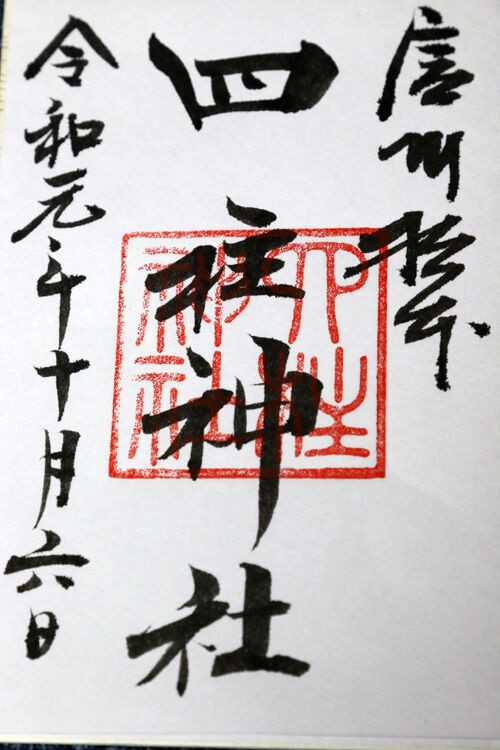 信州松本
四柱神社
四柱神社
令和元年十月六日